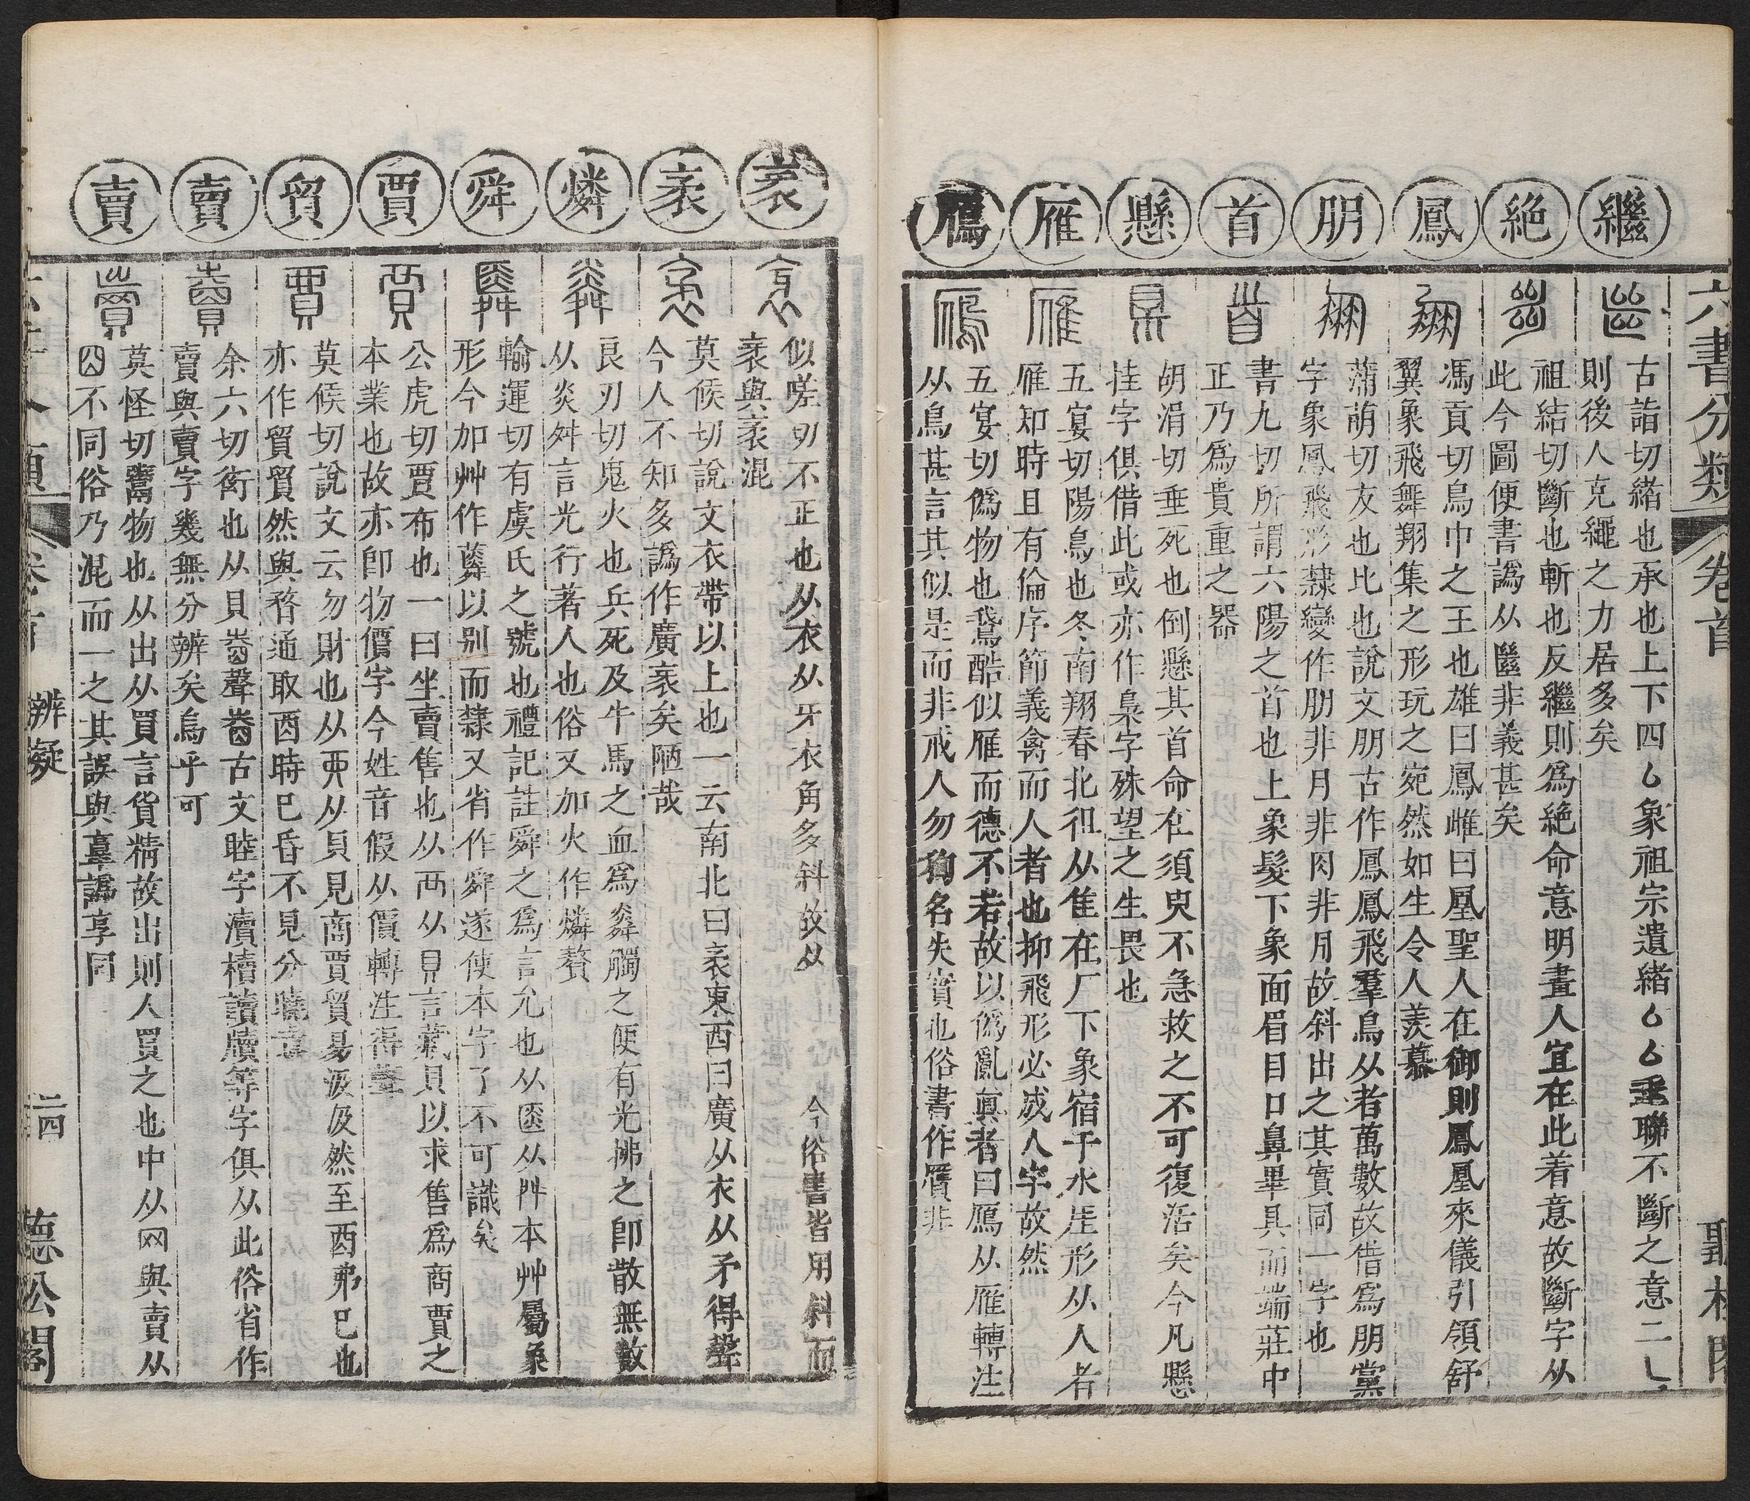 六書分類
卷首
聽松閣
繼
古詣切緒也承也上下四𠃋象祖宗遺緒垂聯不斷之意二
則後人克繩之力居多矣
絶
祖結切斷也斬也反繼則爲絶命意明晝人宜在此着意故斷字从
此今圖便書譌从㡭非義甚矣
鳳
馮貢切鳥中之王也雄曰鳳雌曰凰聖人在御則鳳凰來儀引領舒
翼象飛舞翔集之形玩之宛然如生令人羨慕
朋
蒲萠切友也比也說文朋古作鳳鳳飛羣鳥从者萬數故借爲朋黨
字象鳳飛形隸變作朋非月非肉非月故斜出之其實同一字也
首
書九切所謂六陽之首也上象髮下象面眉目口鼻畢具而端莊中
正乃爲貴重之器
懸
胡涓切垂死也倒懸其首命在須臾不急救之不可復活矣今凡懸
挂字俱借此或亦作梟字殊望之生畏也
雁
五宴切陽鳥也冬南翔春北徂从隹在厂下象宿于水厓形从人者
雁知時且有倫序節義禽而人者也抑飛形必成人字故然
鴈
五宴切僞物也鵞酷似雁而德不若故以僞亂眞者曰鴈从雁轉注
从鳥甚言其似是而非戒人勿狥名失實也俗書作贋非
衺
似嗟切不正也从衣从牙衣角多斜故从 今俗書皆用斜而
衺與袤混
袤
莫候切說文衣帶以上也一云南北曰袤東西曰廣从衣从矛得聲
今人不知多譌作廣衺矣陋哉
燐
良刃切鬼火也兵死及牛馬之血爲粦觸之便有光拂之卽散無數
从炎舛言光行著人也俗又加火作燐贅
舜
輸運切有虞氏之號也禮記註舜之爲言允也从匧从舛本艸屬象
形今加艸作蕣以别而隸又省作舜遂使本字了不可識矣
賈
公虎切賈布也一曰坐賣售也从襾从貝言蓺貝以求售爲商賈之
本業也故亦卽物價字今姓音假从價轉注得聲
貿
莫候切說文云勿財也从丣从貝見商賈貿易汲伋然至酉弗巳也
亦作貿貿然與瞀通取酉時巳昏不見分曉意
賣
余六切衒也从貝𡍬聲𡍬古文睦字瀆櫝讀牘等字俱从此俗省作
賣與賣字幾無分辨矣烏乎可
賣
莫怪切鬻物也从出从買言貨精故出則人買之也中从网與賣从
囧不同俗乃混而一之其誤與𦎫譌享同
辨疑
二四
聽松閣